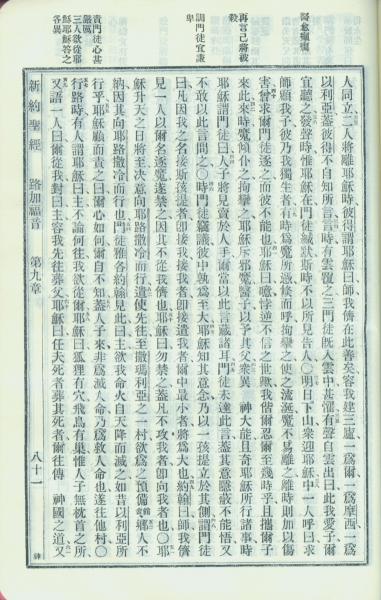 醫愈癲癎
再言己將被
殺
訓門徒宜謙
卑
責門徒心甚
嚴厲
三人欲從耶
穌耶穌答之
各異
人同立二人將離耶穌時彼得謂耶穌曰師我儕在此善矣容我建三廬一爲爾一爲摩西一爲
以利亞蓋彼得不自知所言言時有雲覆之三門徒旣入雲中甚懼有聲自雲出曰此我愛子爾
宜聽之發聲時惟耶穌在門徒緘默斯時不以所見告人〇明日下山衆迎耶穌中一人呼曰求
師顧我子彼乃我獨生者有時爲魔所憑倐而呼拘攣之使之流涎魔不易離之離時則加以傷
害曾求爾門徒逐之而彼不能也耶穌曰噫悖逆不信之世歟我偕爾忍爾至幾時乎且攜爾子
來此來時魔傾仆之拘攣之耶穌斥邪魔醫子以予其父衆異 神大能且奇耶穌所行諸事時
耶穌謂門徒曰人子將見賣於人手爾當以此言藏諸耳門徒未達此言蓋其意隱藏不能悟又
不敢以此言問之〇時門徒竊議彼中孰爲至大耶穌知其意念乃以一孩提立於其側謂門徒
曰凡因我之名接斯孩提者卽接我接我者卽接遣我者爾中最小者將爲大也約翰曰師我儕
見一人以爾名逐魔遂禁之因其不從我儕也耶穌曰勿禁之蓋凡不攻我者卽向我者也〇耶
穌升天之日將至決意向耶路撒冷而行遣使先往至撒瑪利亞之一村欲爲之預備館舍鄉人不
納因其向耶路撒冷而行也門徒雅各約翰見此曰主欲我命火自天降而滅之如昔以利亞所
行乎耶穌顧而責之曰爾心如何爾自不知蓋人子來非爲滅人命乃爲救人命也遂往他村〇
行路時有人謂耶穌曰主不論何往我欲從爾耶穌曰狐狸有穴飛鳥有巢惟人子無枕首之所
又語一人曰爾從我對曰主容我先往葬父耶穌曰任夫死者葬其死者爾往傳 神國之道又
新約聖經 路加福音 第九章 八十一 神